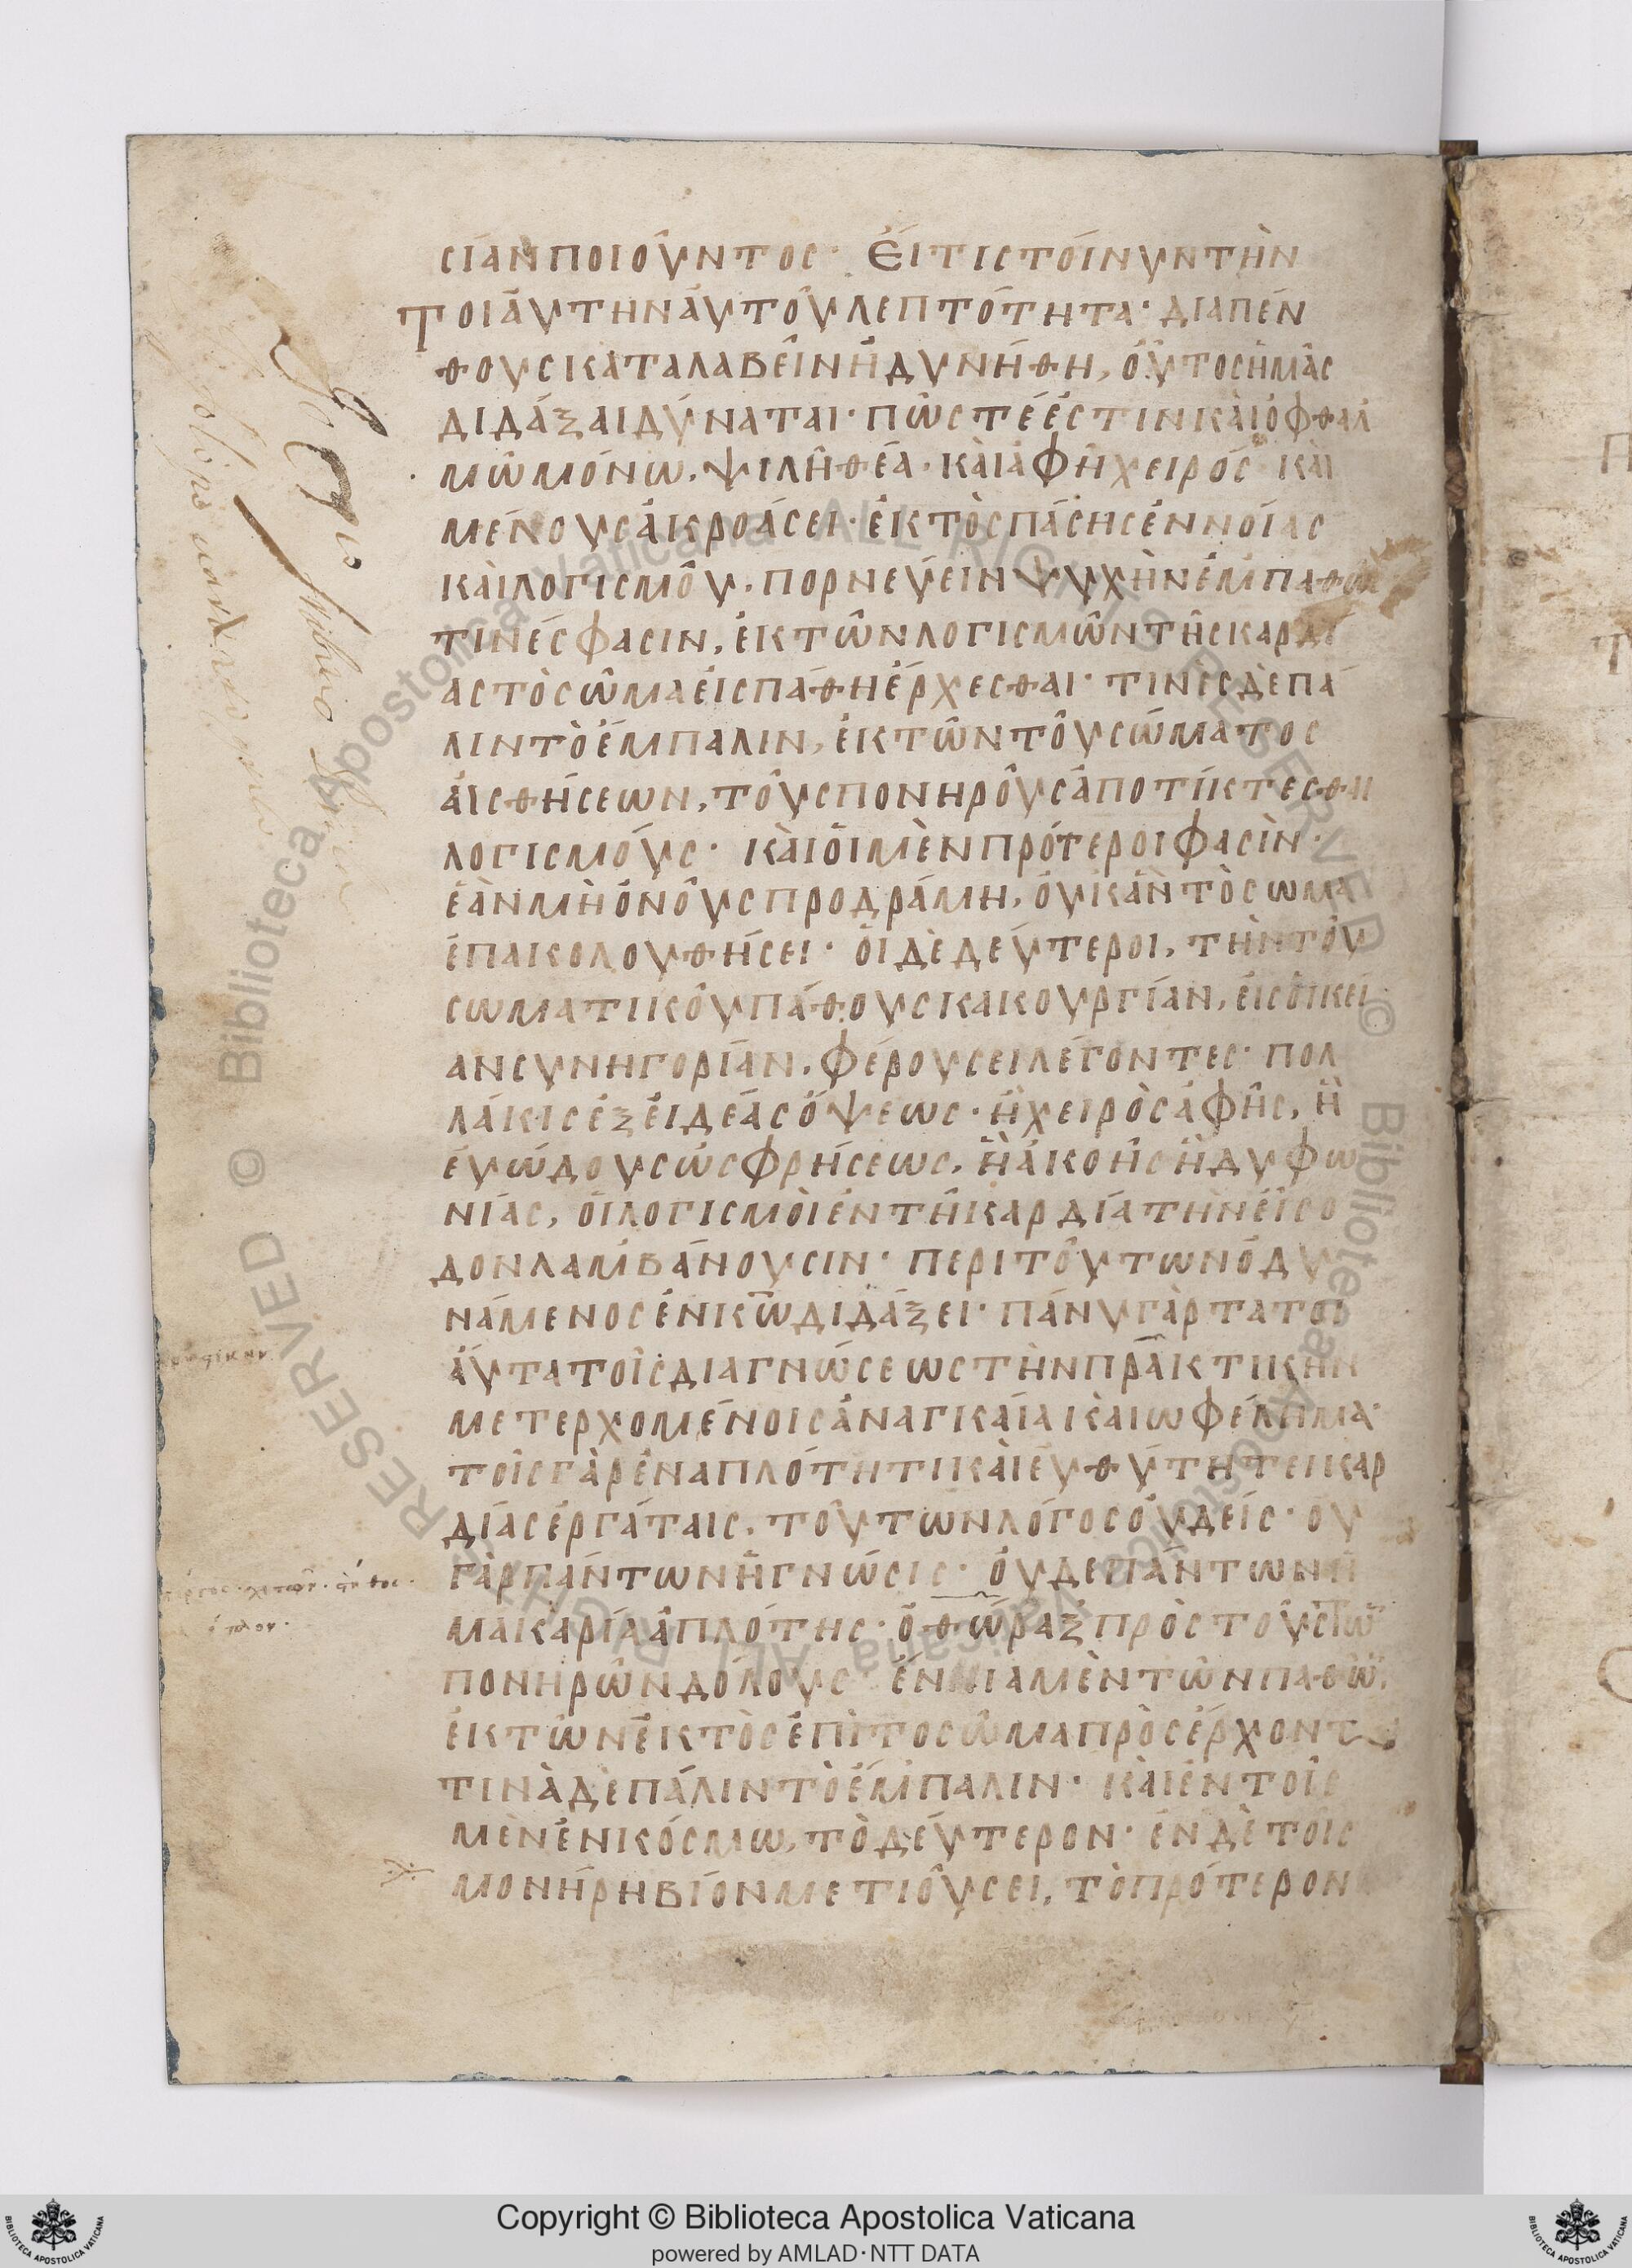 ΣΙΑΝΠΟΙΟΥΝΤΟΣ· ΕΙΤΙΣΤΟΙΝΥΝΤΗΝ
ΤΟΙΑΥΤΗΝΑΥΤΟΥΛΕΠΤΟΤΗΤΑ· ΔΙΑΠΕΝ
ΘΟΥΣΚΑΤΑΛΑΒΕΙΝΗΔΥΝΗΘΗ, ΟΥΤΟΣΗΜΑΣ
ΔΙΔΑΞΑΙΔΥΝΑΤΑΙ· ΠΩΣΤΕΕΣΤΙΝΚΑΙΟΦΘΑΛ
ΜΩΜΟΝΩ, ΨΙΛΗΘΕΑ· ΚΑΙΑΦΗΧΕΙΡΟΣ ΚΑΙ
ΜΕΝΟΥΣΑΚΡΟΑΣΕΙ· ΕΚΤΟΣΠΑΣΗΣΕΝΝΟΙΑΣ
ΚΑΙΛΟΓΙΣΜΟΥ, ΠΟΡΝΕΥΕΙΝΨΥΧΗΝΕΜΠΑΘΩΣ
ΤΙΝΕΣΦΑΣΙΝ, ΕΚΤΩΝΛΟΓΙΣΜΩΝΤΗΣΚΑΡΔΙ
ΑΣΤΟΣΩΜΑΕΙΣΠΑΘΗΕΡΧΕΣΘΑΙ· ΤΙΝΕΣΔΕΠΑ
ΛΙΝΤΟΕΜΠΑΛΙΝ, ΕΚΤΩΝΤΟΥΣΩΜΑΤΟΣ
ΑΙΣΘΗΣΕΩΝ, ΤΟΥΣΠΟΝΗΡΟΥΣΑΠΟΤΙΚΤΕΣΘΑΙ
ΛΟΓΙΣΜΟΥΣ· ΚΑΙΟΙΜΕΝΠΡΟΤΕΡΟΙΦΑΣΙΝ·
ΕΑΝΜΗΟΝΟΥΣΠΡΟΔΡΑΜΗ, ΟΥΚΑΝΤΟΣΩΜΑ
ΕΠΑΙΚΟΛΟΥΘΗΣΕΙ· ΟΙΔΕΔΕΥΤΕΡΟΙ, ΤΗΝΤΟΥ
ΣΩΜΑΤΙΚΟΥΠΑΘΟΥΣΚΑΚΟΥΡΓΙΑΝ, ΕΙΣΟΙΚΕΙ
ΑΝΣΥΝΗΓΟΡΙΑΝ, ΦΕΡΟΥΣΕΙΛΕΓΟΝΤΕΣ· ΠΟΛ
ΛΑΚΙΣΕΞΕΙΔΕΑΣΟΨΕΩΣ· ΗΧΕΙΡΟΣΑΦΗΣ, Η
ΕΥΩΔΟΥΣΩΣΦΡΗΣΕΩΣ, ΗΑΚΟΗΣΗΔΥΦΩ
ΝΙΑΣ, ΟΙΛΟΓΙΣΜΟΙΕΝΤΗΚΑΡΔΙΑΤΗΝΕΙΣΟ
ΔΟΝΛΑΜΒΑΝΟΥΣΙΝ· ΠΕΡΙΤΟΥΤΩΝΟΔΥ
ΝΑΜΕΝΟΣΕΝΚΩΔΙΔΑΞΕΙ· ΠΑΝΥΓΑΡΤΑΤΟΙ
ΑΥΤΑΤΟΙΣΔΙΑΓΝΩΣΕΩΣΤΗΝΠΡΑΚΤΙΚΗΝ
ΜΕΤΕΡΧΟΜΕΝΟΙΣΑΝΑΓΚΑΙΑΚΑΙΩΦΕΛΗΜΑ·
ΤΟΙΣΓΑΡΕΝΑΠΛΟΤΗΤΙΚΑΙΕΥΘΥΤΗΤΕΙΚΑΡ
ΔΙΑΣΕΡΓΑΤΑΙΣ, ΤΟΥΤΩΝΛΟΓΟΣΟΥΔΕΙΣ· ΟΥ
ΓΑΡΠΑΝΤΩΝΗΓΝΩΣΙΣ· ΟΥΔΕΠΑΝΤΩΝΗ
ΜΑΚΑΡΙΑΑΠΛΟΤΗΣ· ΟΘΩΡΑΞΠΡΟΣΤΟΥΣΤΩ
ΠΟΝΗΡΩΝΔΟΛΟΥΣ· ΕΝΝΙΑΜΕΝΤΩΝΠΑΘΩ,
ΕΚΤΩΝΕΚΤΟΣΕΠΙΤΟΣΩΜΑΠΡΟΣΕΡΧΟΝΤ
ΤΙΝΑΔΕΠΑΛΙΝΤΟΕΜΠΑΛΙΝ· ΚΑΙΕΝΤΟΙΣ
ΜΕΝΕΝΚΟΣΜΩ, ΤΟΔΕΥΤΕΡΟΝ· ΕΝΔΕΤΟΙΣ
ΜΟΝΗΡΗΒΙΟΝΜΕΤΙΟΥΣΕΙ, ΤΟΠΡΟΤΕΡΟΝ
Copyright © Biblioteca Apostolica Vaticana
powered by AMLAD·NTT DATA